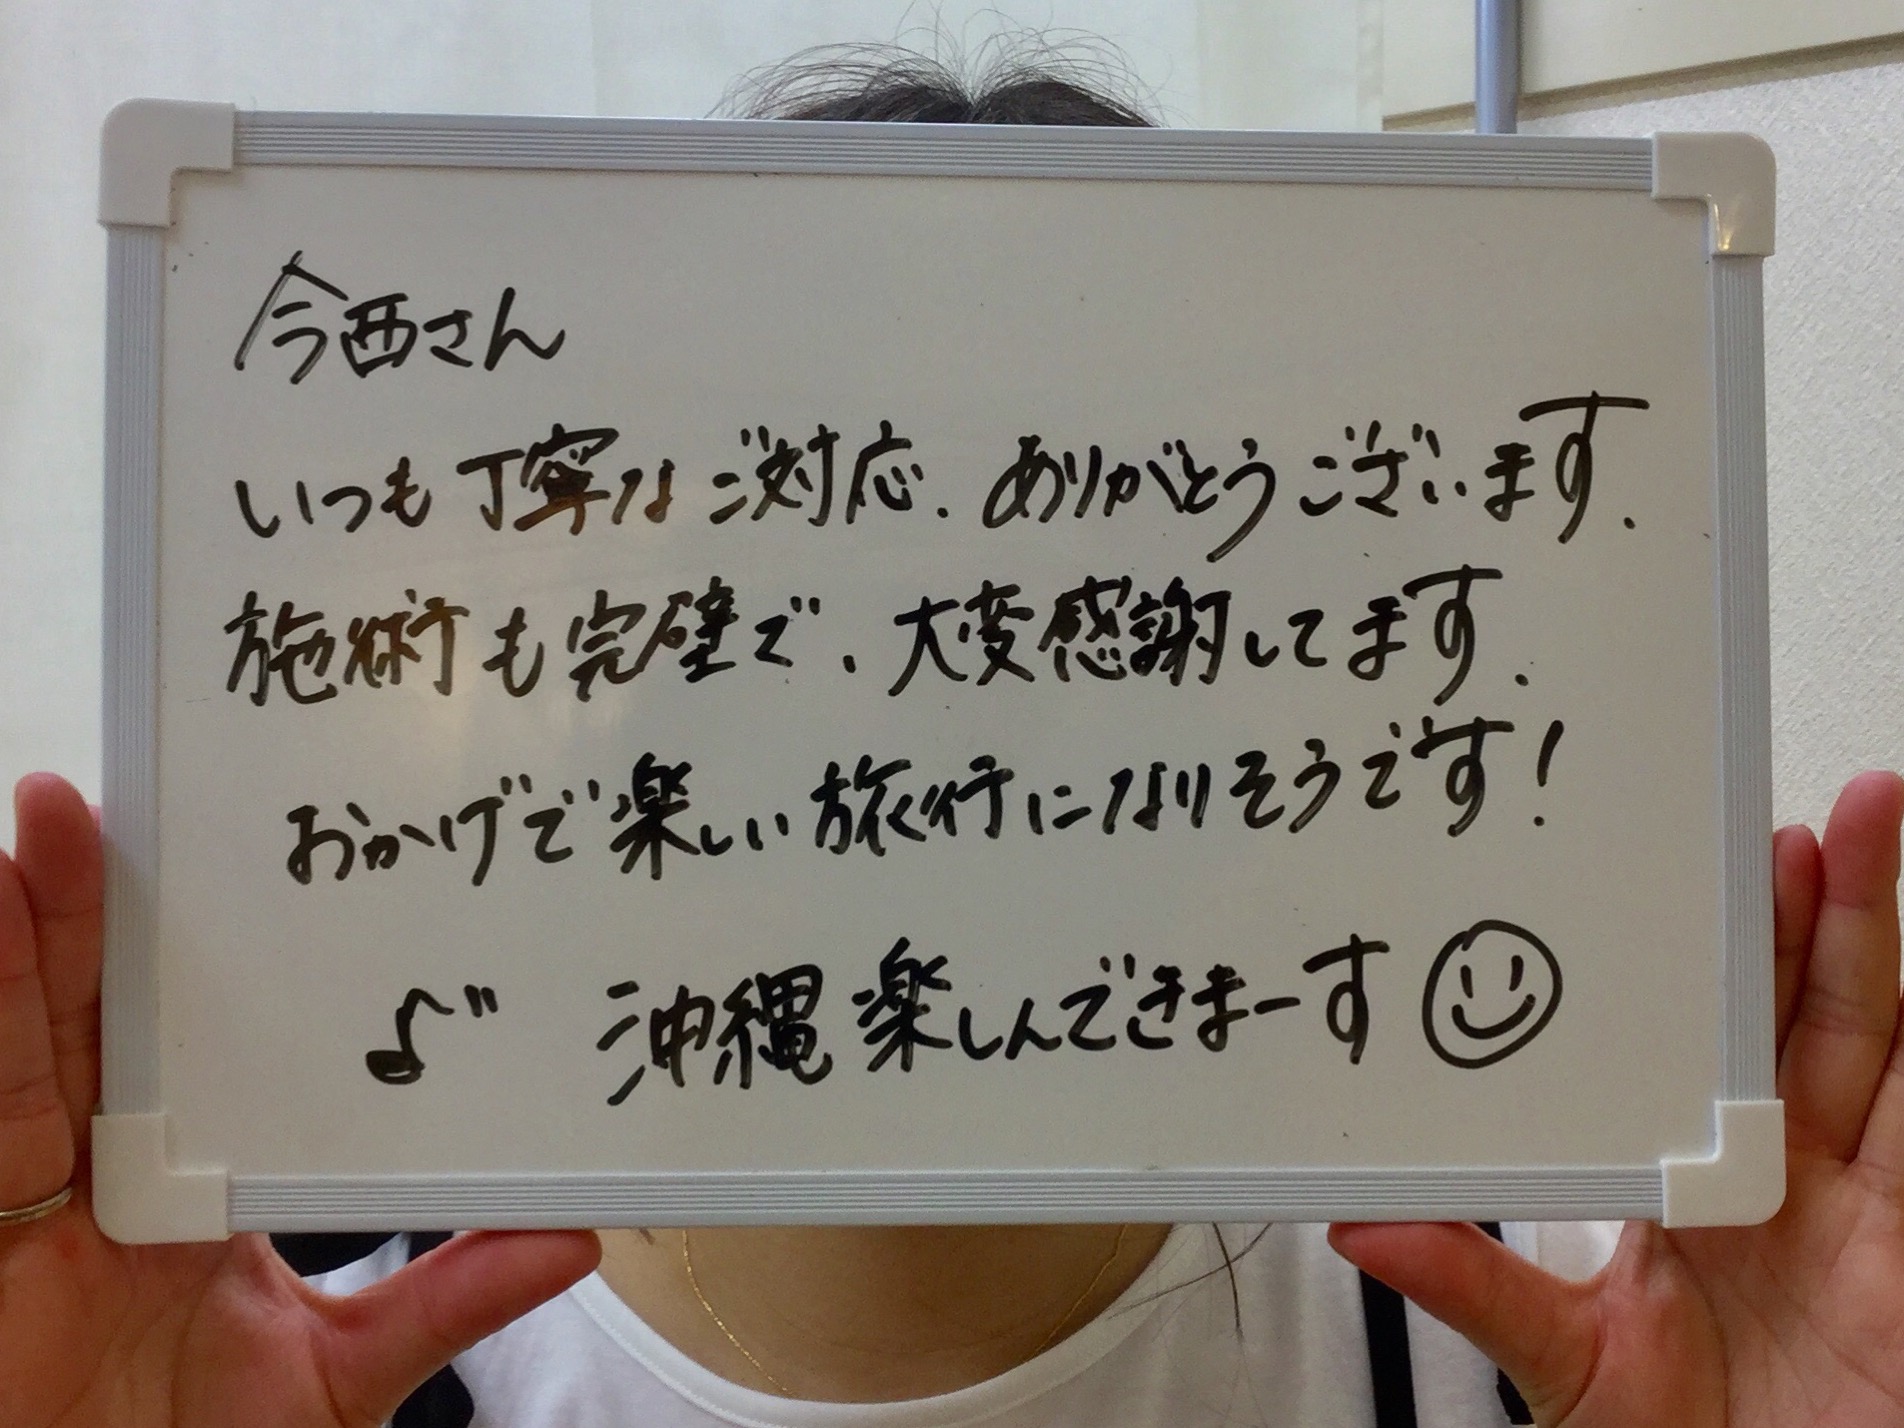 今西さん
いつも丁寧なご対応、ありがとうございます。
施術も完璧で、大変感謝してます。
おかげで楽しい旅行になりそうです！
♪" 沖縄楽しんできまーす☺